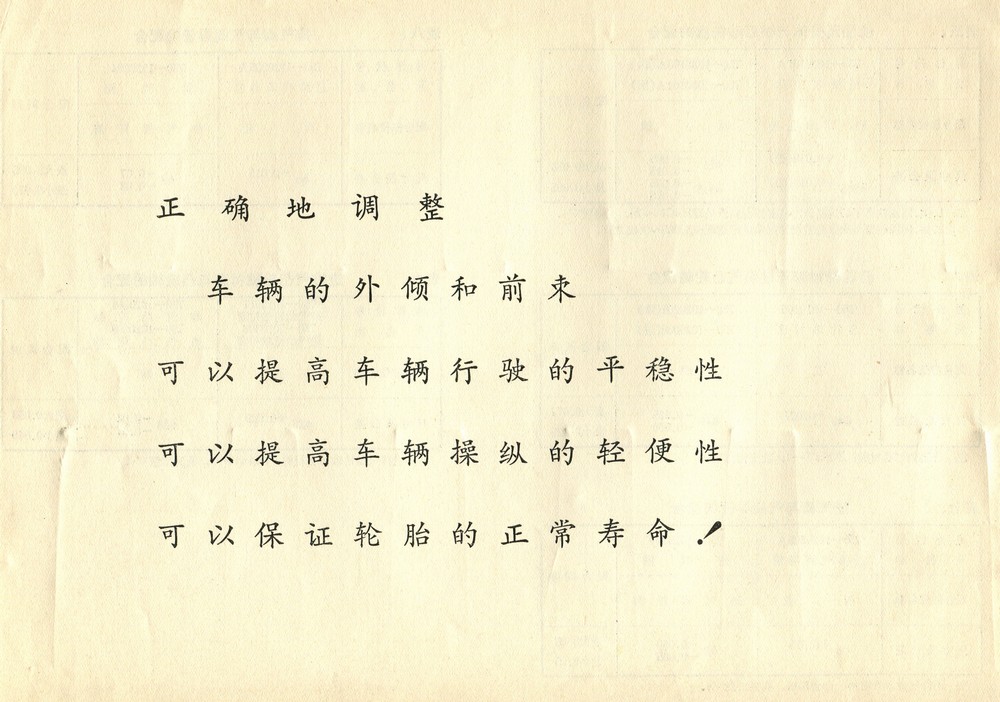 正确地调整
车辆的外倾和前束
可以提高车辆行驶的平稳性
可以提高车辆操纵的轻便性
可以保证轮胎的正常寿命！